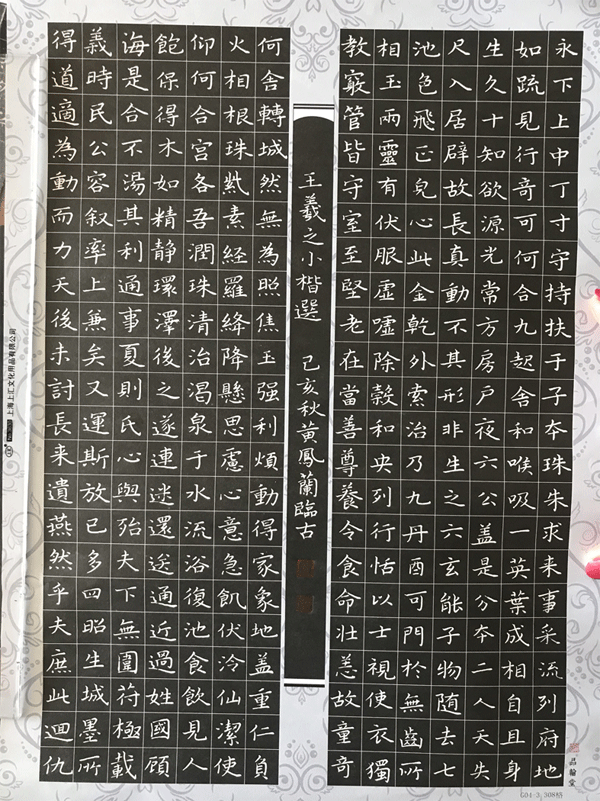 永下上中丁寸守持扶于子本珠朱求来事采流列府地
如疏見行奇可何合九起舍和喉吸一英葉成相自且身
生久十知欲源光常方房戶夜六公盖是分本二人天失
尺入居辟故長真動不其形非生之六玄能子物随去七
池色飛正皃心此金乾外索治乃九丹酉可門於無齒所
相玉兩靈有伏服虚嘘除穀和央列行恬以士視使衣獨
教竅管皆守室至堅老在當善尊養令食命壮恙故童奇
王羲之小楷選 己亥秋黄鳳蘭臨古
何舍轉城然無為照焦玉强利煩動得家象地盖重仁負
火相根珠紫素経羅絳降懸思慮心意急飢伏泠仙潔使
仰何合宮各吾潤珠清治渴泉于水流浴復池食飲見人
飽保得木如精静環澤後之遂連迷還送通近過姓國顧
海是合不湯其利通事夏則氏心與殆夫下無圍苻極載
義時民公容叙率上兼矣又運斯放已多四昭生城墨所
得道適為動而力天後未討長来遺燕然乎夫庶此迴仇
品翰堂
G04-3.308格
上海上汇文化用品有限公司